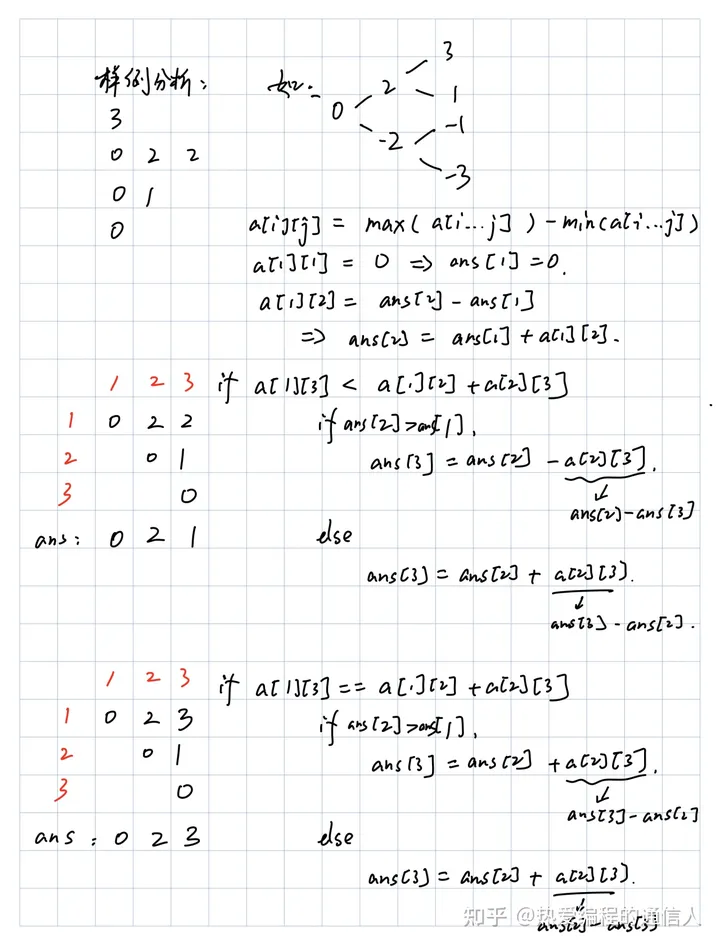 样例分析：
3
0 2 2
0 1
0
如：
0
2
-2
3
1
-1
-3
a[i][j] = max( a[i...j] ) - min(a[i...j])
a[1][1] = 0 => ans[1]=0.
a[1][2] = ans[2] - ans[1]
=> ans[2] = ans[1] + a[1][2].
1 2 3
1 0 2 2
2 0 1
3 0
ans: 0 2 1
if a[1][3] < a[1][2] + a[2][3]
if ans[2]>ans[1],
ans[3] = ans[2] - a[2][3].
ans[2]-ans[3]
else
ans[3] = ans[2] + a[2][3].
ans[3] - ans[2].
1 2 3
1 0 2 3
2 0 1
3 0
ans: 0 2 3
if a[1][3] == a[1][2] + a[2][3]
if ans[2]>ans[1],
ans[3] = ans[2] + a[2][3].
ans[3]-ans[2]
else
ans[3] = ans[2] + a[2][3].
ans[2] - ans[3]
知乎 @热爱编程的通信人